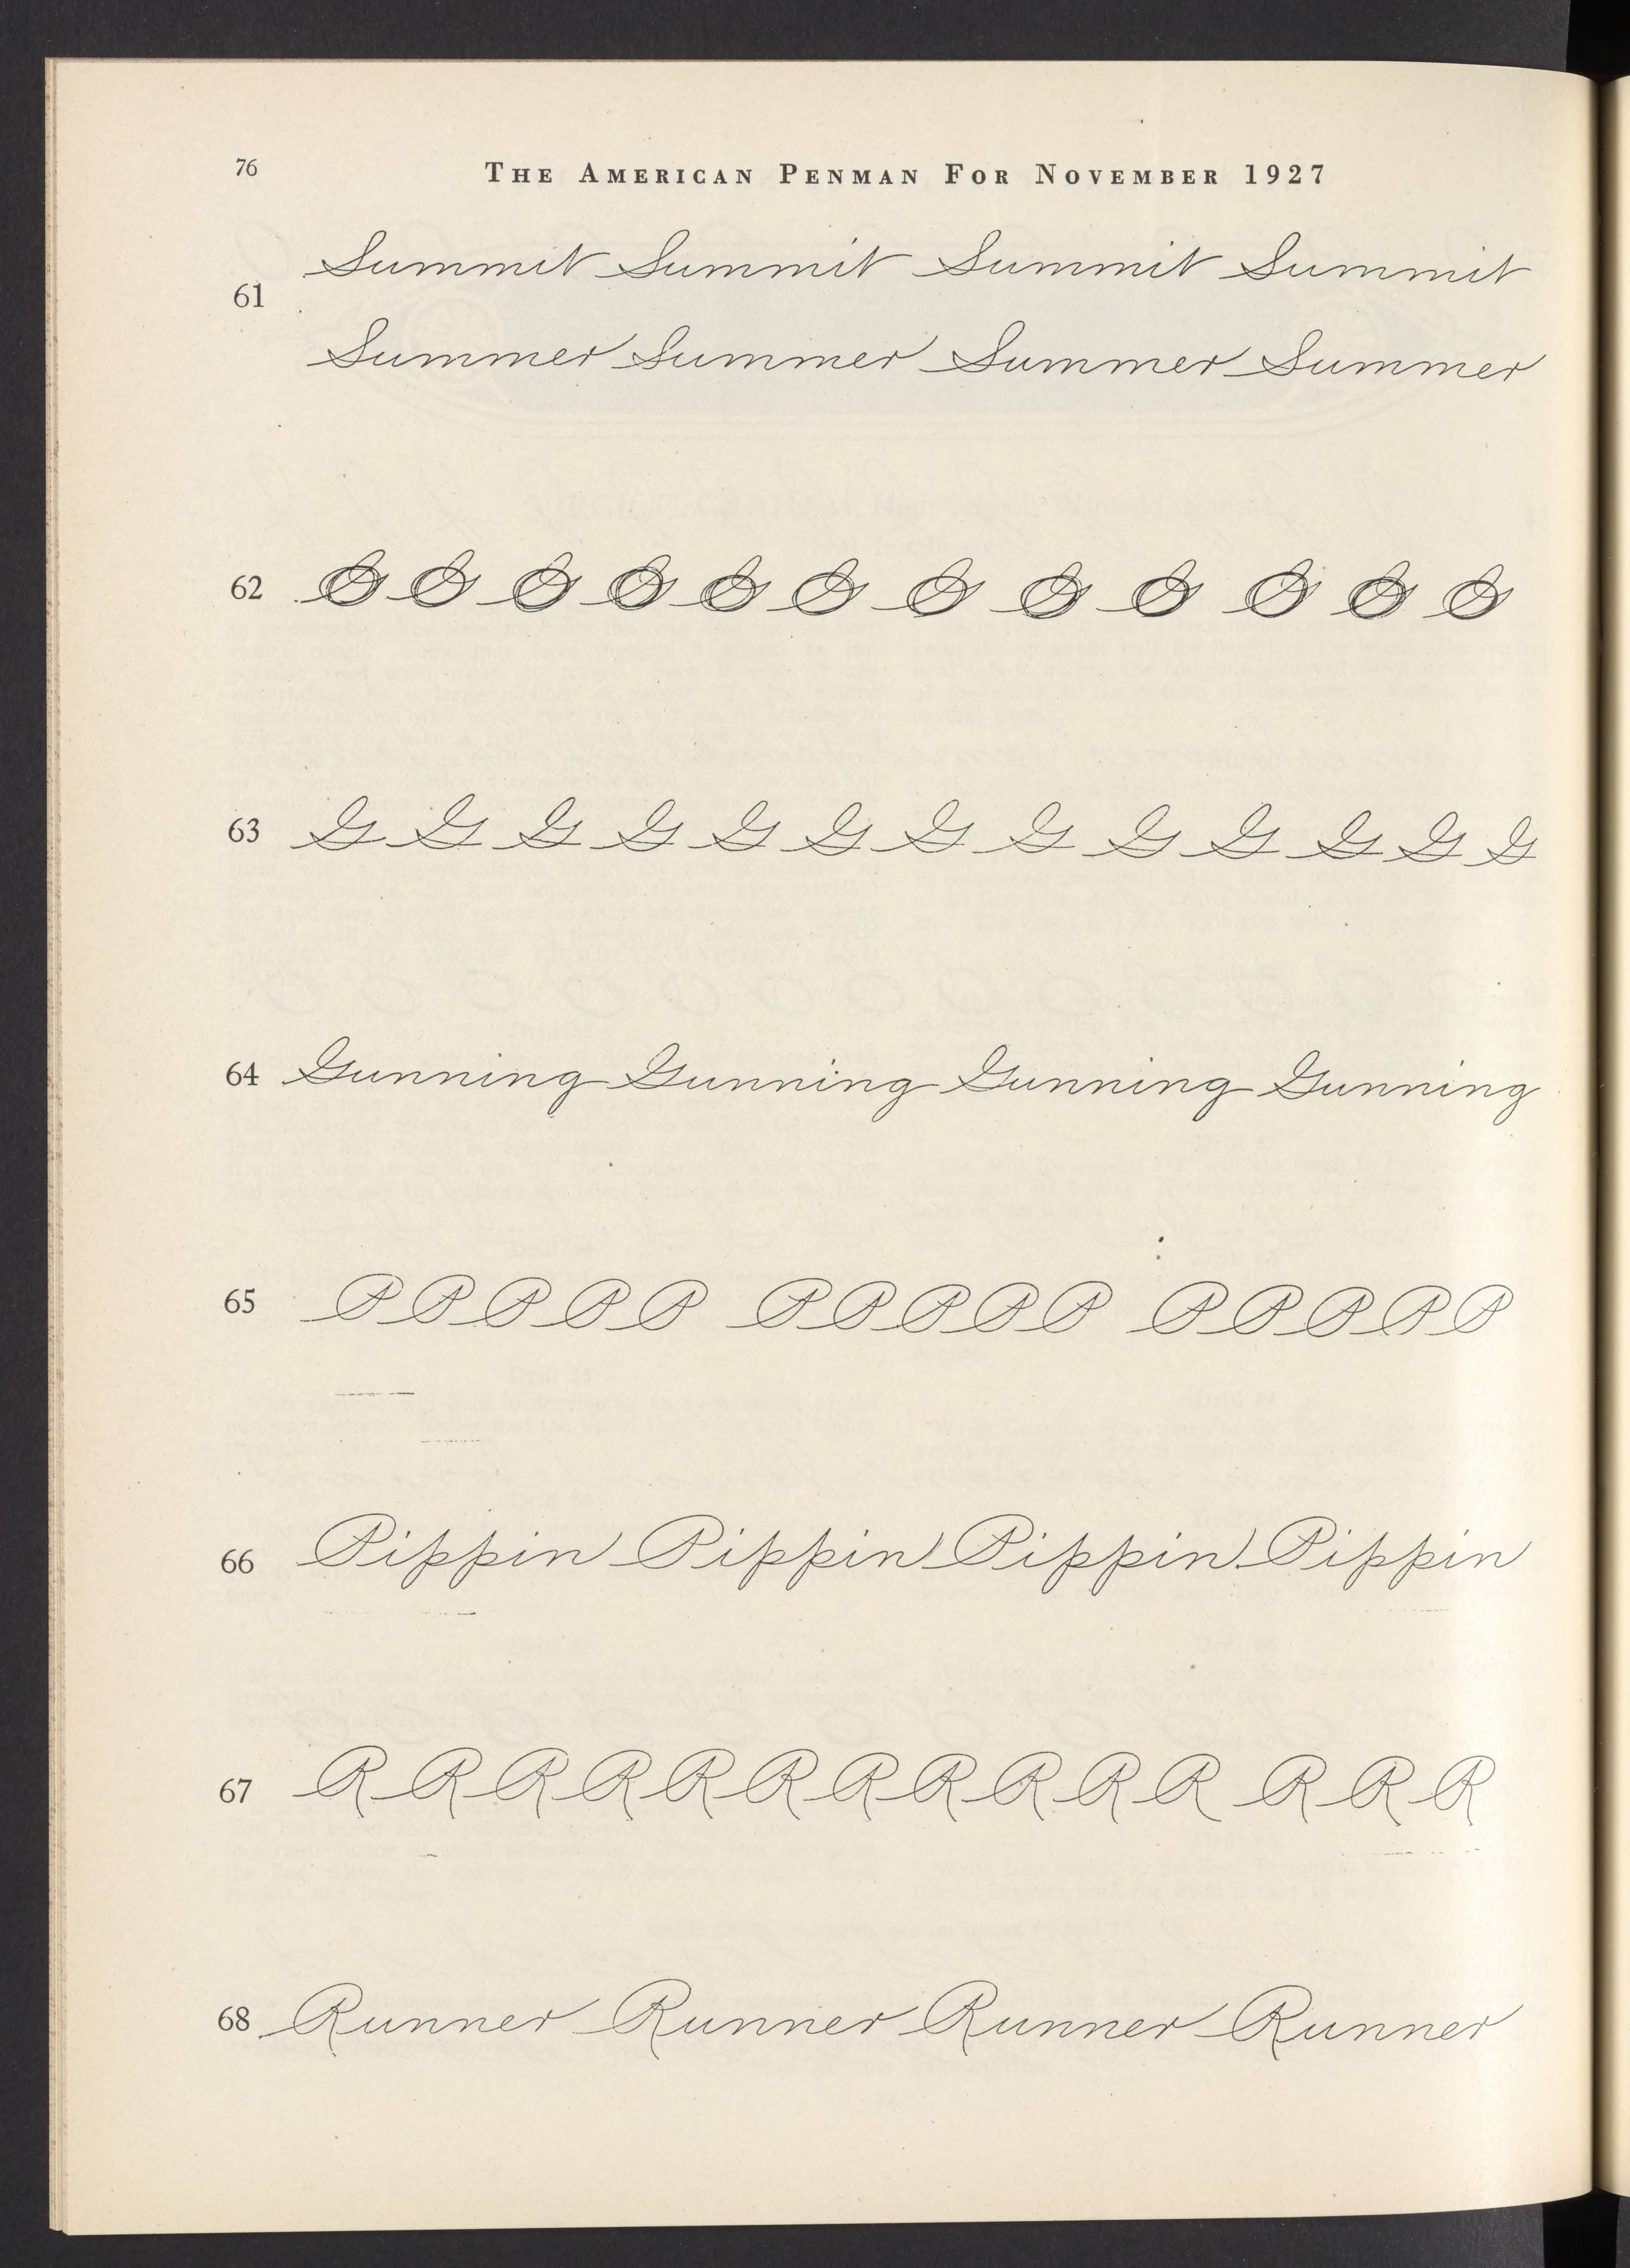 76
THE AMERICAN PENMAN FOR NOVEMBER 1927
61
Summit Summit Summit Summit
Summer Summer Summer Summer
62
63 G G G G G G G G G G G G G
64 Gunning Gunning Gunning Gunning
65 P P P P P P P P P P P P P P P
66 Pippin Pippin Pippin Pippin
67 R R R R R R R R R R R R R R
68 Runner Runner Runner Runner